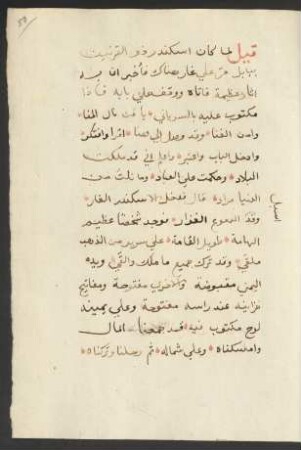 قيل لما كان اسكندر ذو القرنين
ببابل مر علي غار هناك فأخبر ان به
اثار عظيمة فاتاه ووقف علي بابه فاذا
مكتوب عليه بالسرياني يا من نال المنا
وامن الفنا وقد وصل الي هنا اقرا وافتكر
وادخل الباب واعتبر واعلم اني قد ملكت
البلاد وحكمت علي العباد وما نلت من
الدنيا مراد قال فدخل الاسكندر الغار
فوجد شخصًا عظيم
الهامة طويل القامة علي سرير من الذهب
ملقي وقد ترك جميع ما ملك والقي ويده
اليمني مقبوضة والاخري مفتوحة ومفاتيح
خزاينه عند راسه مفتوحة وعلي يمينه
لوح مكتوب فيه قد جمعنا المال
وامسكناه وعلي شماله ثم رحلنا وتركناه